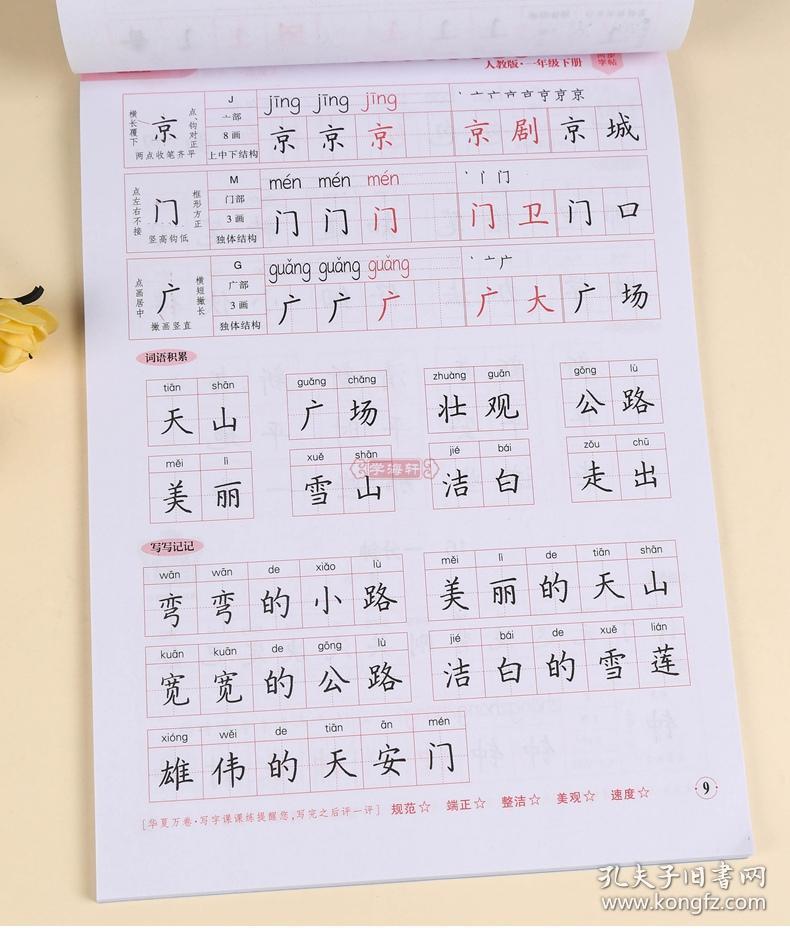 人教版·一年级下册
同步
字帖
横长覆下 京 点、钩对正
两点收笔齐平
J
亠部
8画
上中下结构
jīng jīng jīng
京 京 京 京 剧 京 城
点左右不接 门 框形方正
竖高钩低
M
门部
3画
独体结构
mén mén mén
门 门 门 门 卫 门 口
点画居中 广 横短撇长
撇画竖直
G
广部
3画
独体结构
guǎng guǎng guǎng
广 广 广 广 大 广 场
词语积累
tiān shān guǎng chǎng zhuàng guān gōng lù
天 山 广 场 壮 观 公 路
měi lì xuě shān jié bái zǒu chū
美 丽 雪 山 洁 白 走 出
学海轩
写写记记
wān wān de xiǎo lù měi lì de tiān shān
弯 弯 的 小 路 美 丽 的 天 山
kuān kuān de gōng lù jié bái de xuě lián
宽 宽 的 公 路 洁 白 的 雪 莲
xióng wěi de tiān ān mén
雄 伟 的 天 安 门
[华夏万卷·写字课课练提醒您,写完之后评一评] 规范☆ 端正☆ 整洁☆ 美观☆ 速度☆
9
孔夫子旧书网
www.kongfz.com